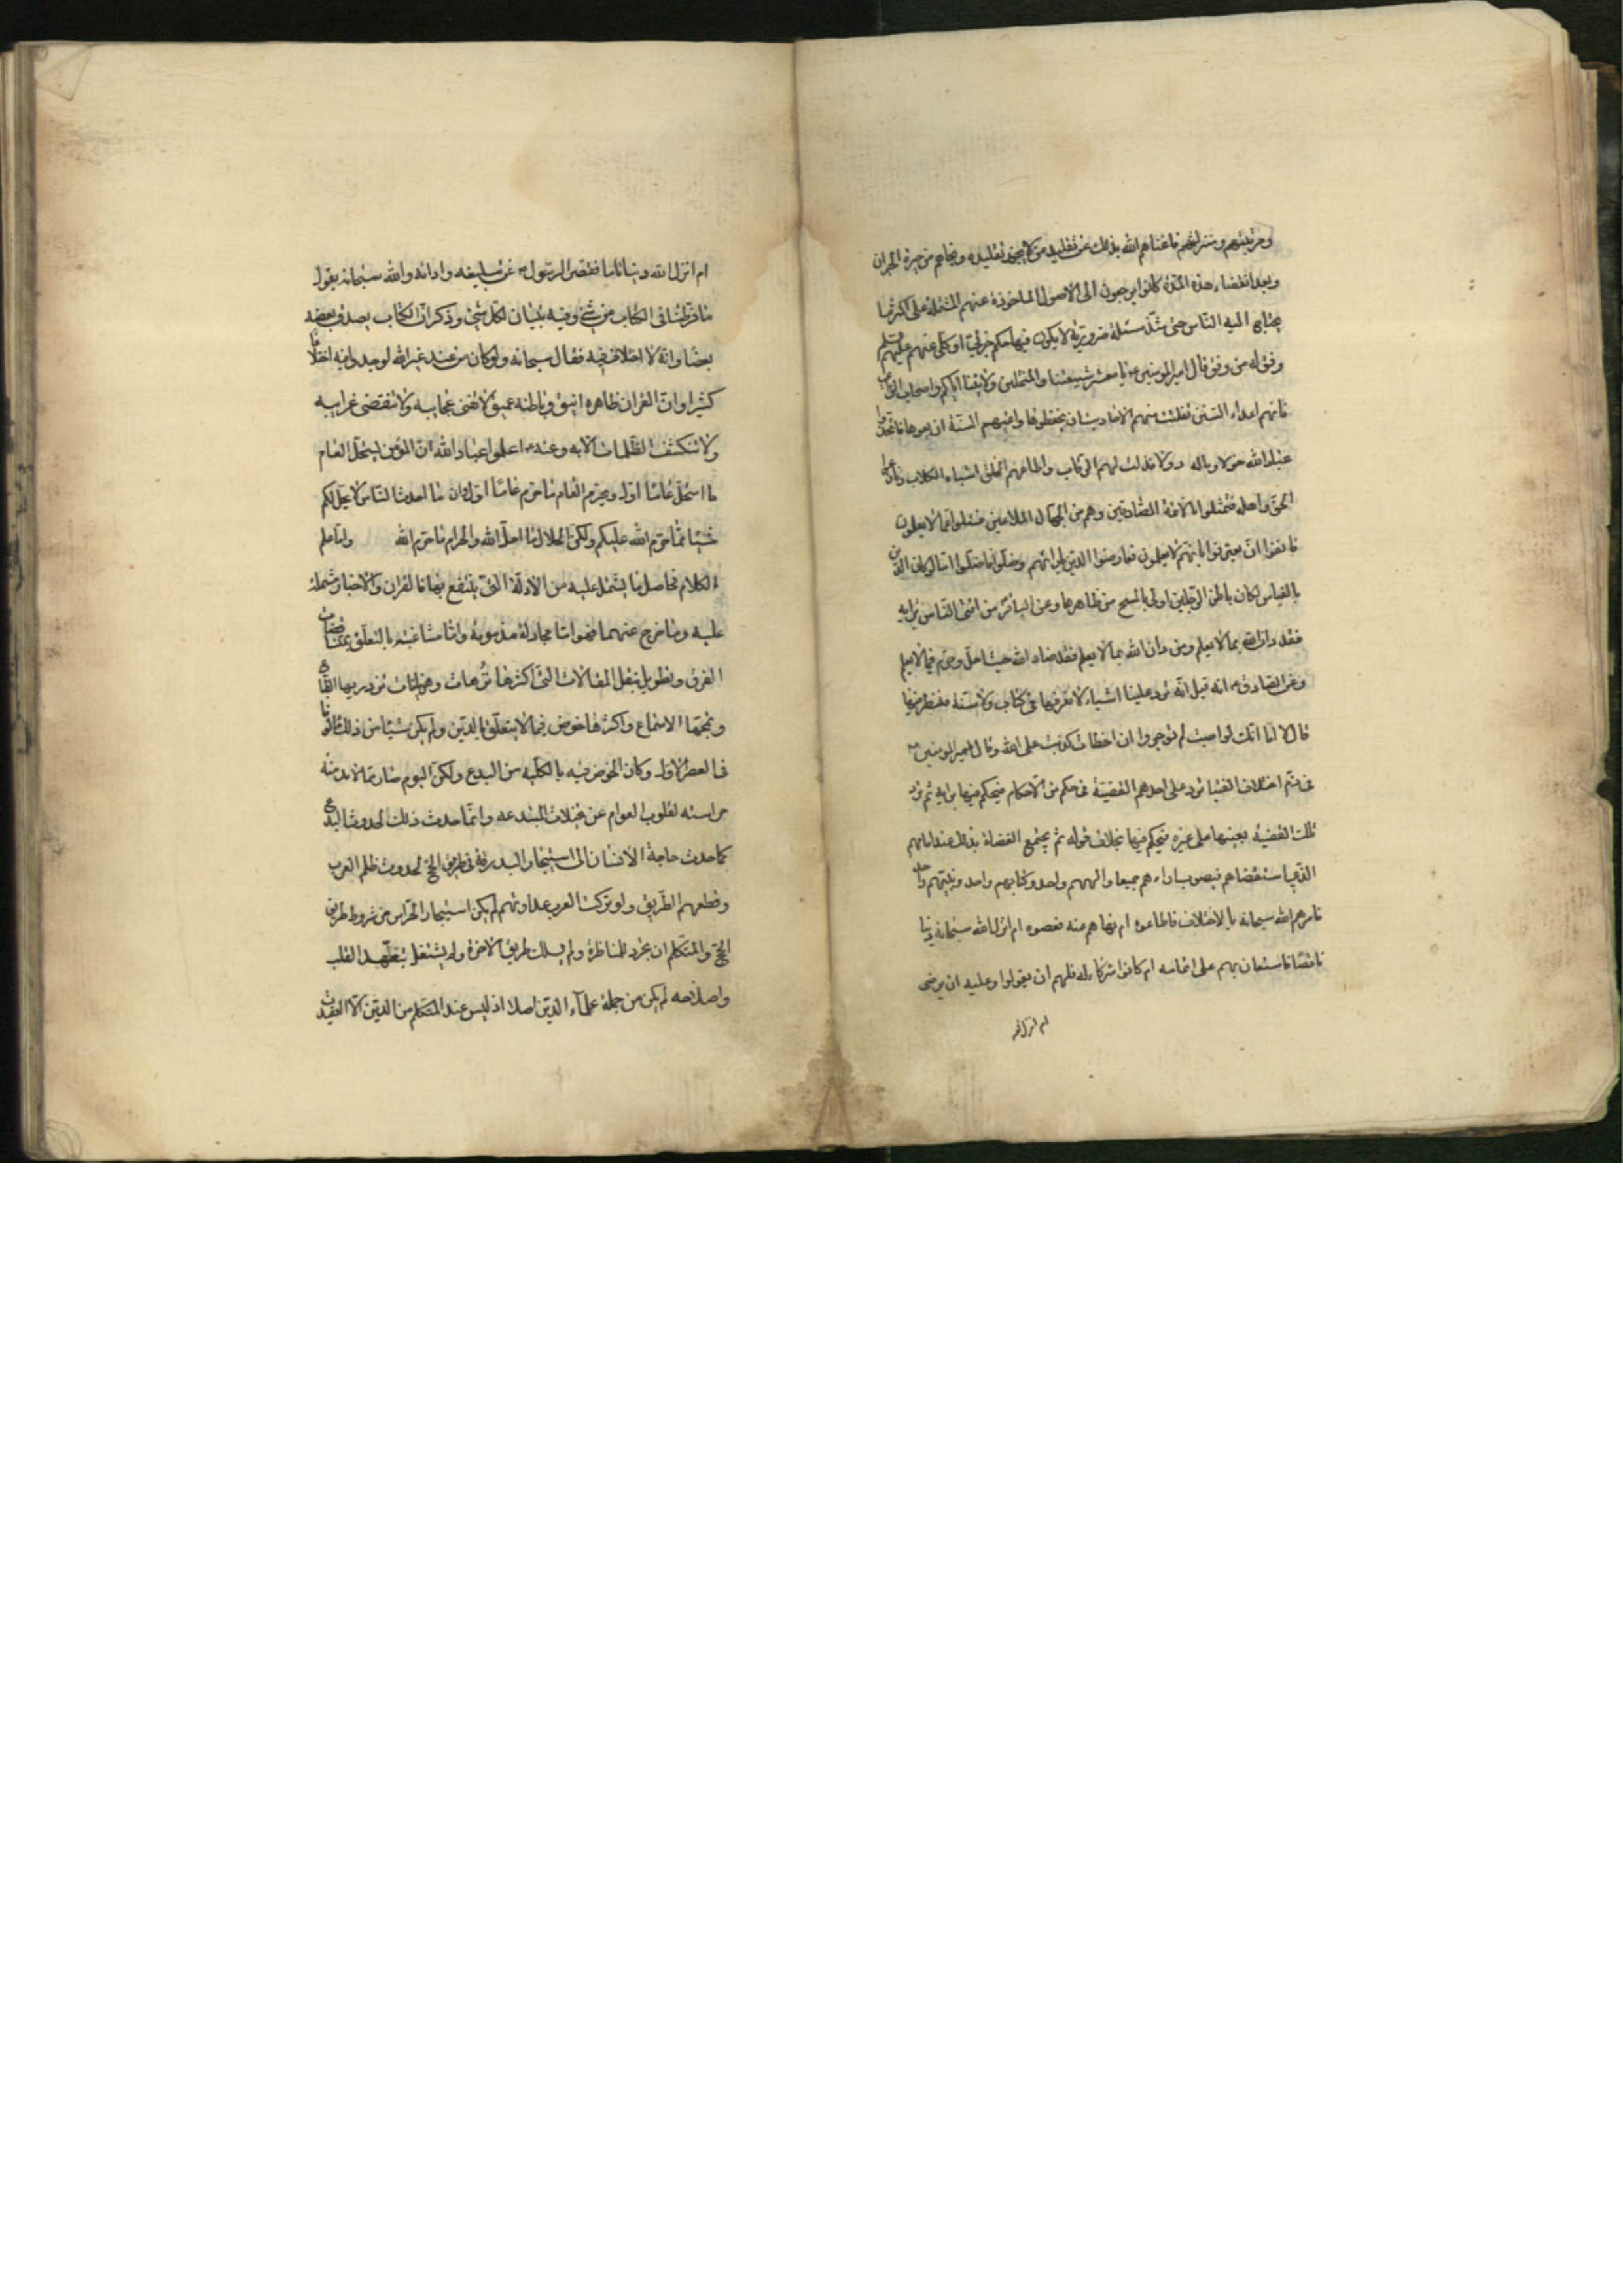 وحزبيتهم ومنزلتهم فاغناهم الله بذلك عن تقليد من لا يجوز تقليده ونجاهم من حيرة الحيران
وبعد انقضاء هذه المدّة كانوا يرجعون الى الاصول الماخوذة عنهم المشتملة على اكثر ما
يحتاج اليه الناس حتى شذّ مسئلة ضرورية لا يكون فيها حكم جزئى او كلى عنهم عليهم
وفق له من وفق قال امير المومنين يا معشر شيعتنا والمنتحلين ولايتنا اياكم واصحاب الراى
فانهم اعداء السنن تفلتت منهم الاحاديث ان يحفظوها واعيتهم السنة ان يعوها فاتخذوا
عباد الله خولا وماله دولا فذلت لهم الرقاب واطاعهم الخلق اشباه الكلاب ونازعوا
الحق واهله فتمثلوا بالائمة الصادقين وهم من الجهال الملاعين فسئلوا عما لا يعلمون
فانفوا ان يعترفوا بانهم لا يعلمون فعارضوا الدين بارائهم وضلوا فاضلوا اما لو كان الدين
بالقياس لكان باطن الرجلين اولى بالمسح من ظاهرهما وعن الباقر من افتى الناس برايه
فقد دان الله بما لا يعلم ومن دان الله بما لا يعلم فقد ضاد الله حيث احلّ وحرّم فيما لا يعلم
وعن الصادق انه قيل له ترد علينا اشياء لا نعرفها فى كتاب ولا سنة فننظر فيها
قال لا اما انك لو اصبت لم توجر وان اخطات كذبت على الله وقال امير المومنين
فى ذم اختلاف الفتيا ترد على احدهم القضيّة فى حكم من الاحكام فيحكم فيها برايه ثم ترد
تلك القضيه بعينها على غيره فيحكم فيها بخلاف قوله ثم يجتمع القضاة بذلك عند امامهم
الذى استقضاهم فيصوب اراءهم جميعا والههم واحد وكتابهم واحد ونبيّهم واحد
فامرهم الله سبحانه بالاختلاف فاطاعوه ام نهاهم عنه فعصوه ام انزل الله سبحانه دينا
ناقصا فاستعان بهم على اتمامه ام كانوا شركاء له فلهم ان يقولوا وعليه ان يرضى
ام انزل الله
ام انزل الله دينا تاما فقصر الرسول عن تبليغه وادائه والله سبحانه يقول
ما فرطنا فى الكتاب من شئ وفيه تبيان لكل شئ وذكر ان الكتاب يصدق بعضه
بعضا وانّه لا اختلاف فيه فقال سبحانه ولو كان من عند غير الله لوجدوا فيه اختلافا
كثيرا وان القران ظاهره انيق وباطنه عميق لا تفنى عجايبه ولا تنقضى غرايبه
ولا تنكشف الظلمات الا به وعنه اعلموا عباد الله ان المؤمن يستحلّ العام
ما استحلّ عاما اول ويحرّم العام ما حرّم عاما اول وان ما احدث الناس لا يحلّ لكم
شيئا مما حرّم الله عليكم ولكن الحلال ما احلّ الله والحرام ما حرّم الله واما علم
الكلام فحاصل ما يشتمل عليه من الادلّة التى ينتفع بها فالقران والاخبار مشتملة
عليه وما خرج عنهما فهو اما مجادلة مذمومة واما مشاغبة بالتعلّق بمناقضات
الفرق وتطويل بنقل المقالات التى اكثرها ترّهات وهذيانات تزدريها الطباع
وتمجها الاسماع واكثرها خوض فيما لا يتعلّق بالدين ولم يكن شيئا من ذلك مالوفا
فى العصر الاول وكان الخوض فيه بالكليه من البدع ولكن اليوم صار مما لا بد منه
حراسته لقلوب العوام عن تخيلات المبتدعه وانما حدث ذلك لحدوث البدع
كما حدث حاجة الانسان الى استيجار البدرقة فى طريق الحج لحدوث ظلم العرب
وقطعهم الطريق ولو تركت العرب عداوتهم لم يكن استيجار الحراس من شروط طريق
الحج والمتكلم ان تجرد للمناظرة ولم يسلك طريق الاخرة ولم يشتغل بتعهد القلب
واصلاحه لم يكن من جملة علماء الدين اصلا اذ ليس عند المتكلم من الدين الا العقيدة